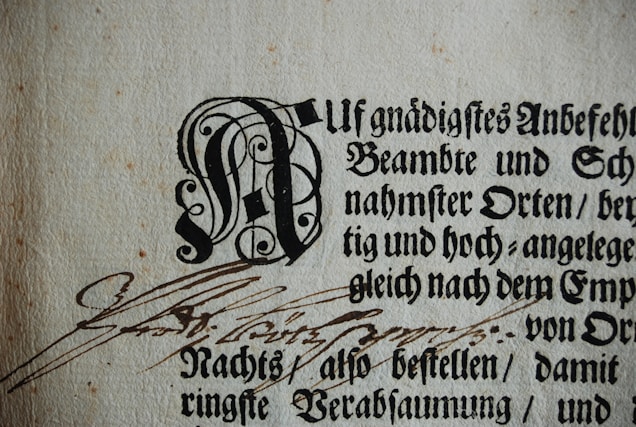 AUf gnädigſtes Anbefehl
Beambte und Sch
nahmſter Orten / bey
tig und hoch-angelege
gleich nach dem Emp
von Or
Nachts / alſo beſtellen / damit
ringſte Verabſaumung / und